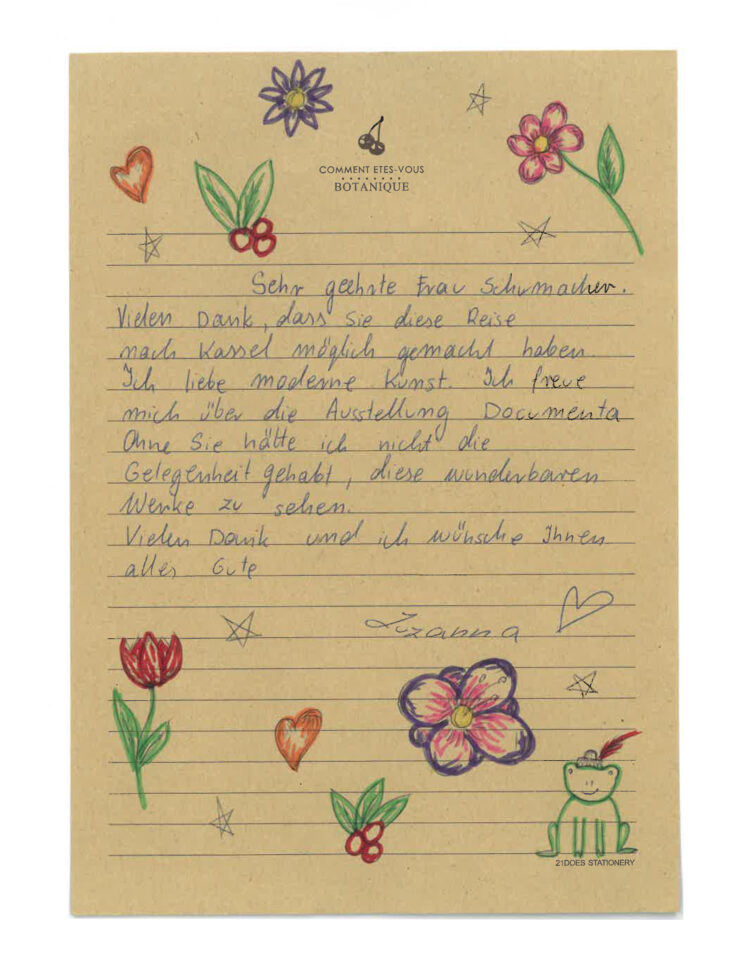 COMMENT ETES-VOUS
BOTANIQUE
Sehr geehrte Frau Schumacher.
Vielen Dank, dass Sie diese Reise
nach Kassel möglich gemacht haben.
Ich liebe moderne Kunst. Ich freue
mich über die Ausstellung Documenta
Ohne Sie hätte ich nicht die
Gelegenheit gehabt, diese wunderbaren
Werke zu sehen.
Vielen Dank und ich wünsche Ihnen
alles Gute
Zuzanna
21DOES STATIONERY